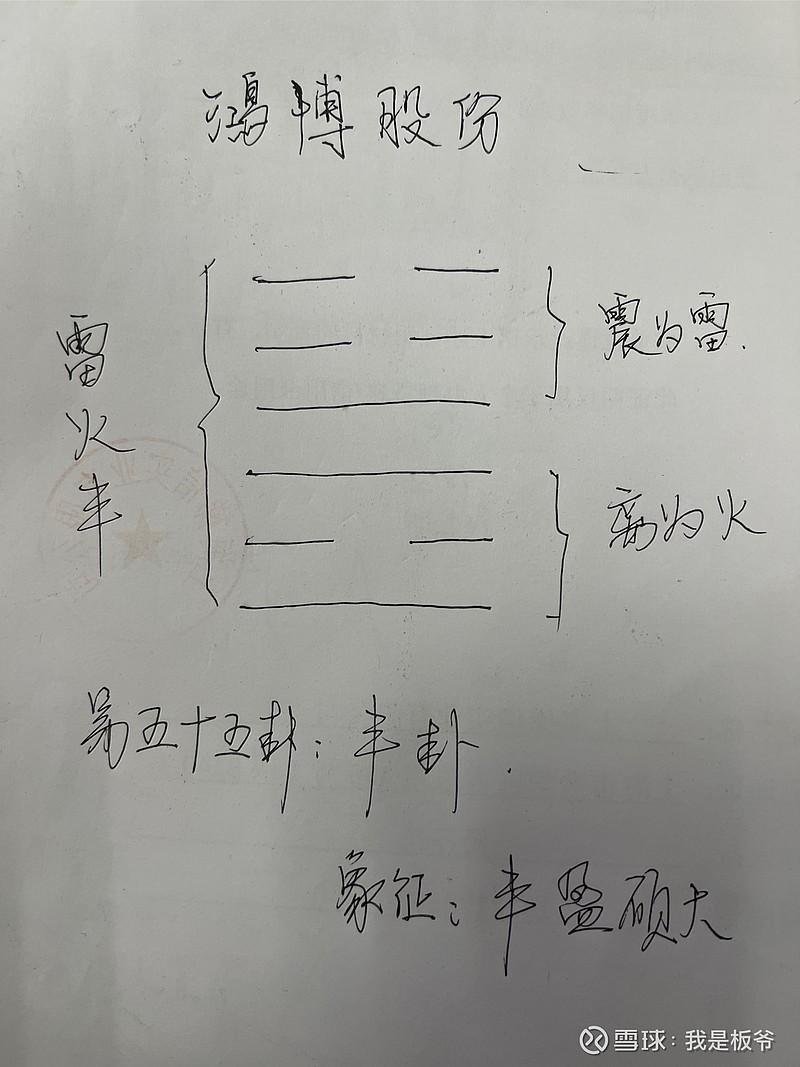 鸿博股份
雷火丰
震为雷.
离为火
第五十五卦:丰卦.
象征:丰盈硕大
雪球:我是板爷